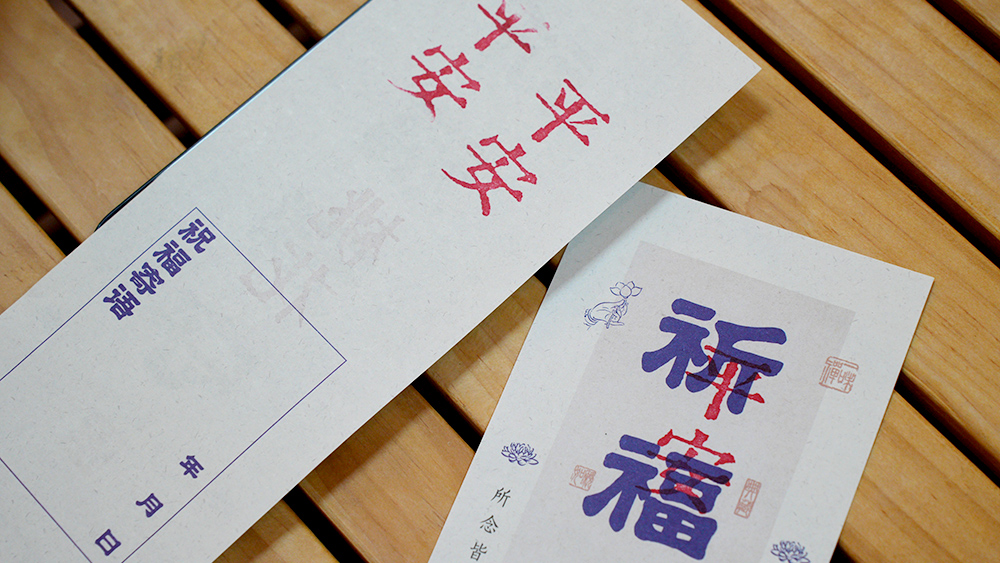 平安
平安
祝福寄语
年月日
祈福
平安
所念皆